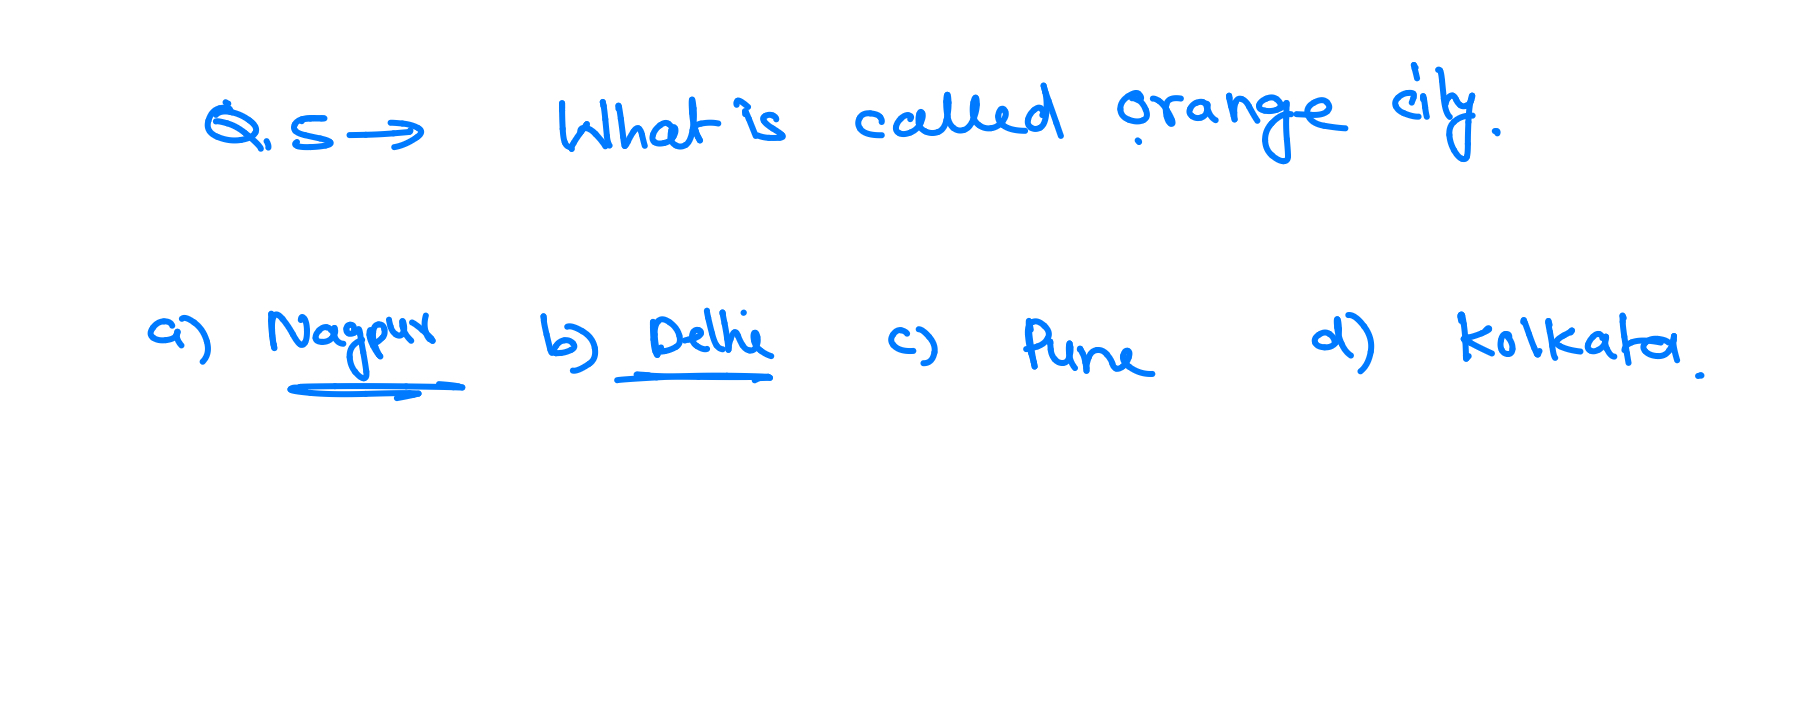 Q.5→ What is called orange city.
a) Nagpur b) Delhi c) Pune d) Kolkata.